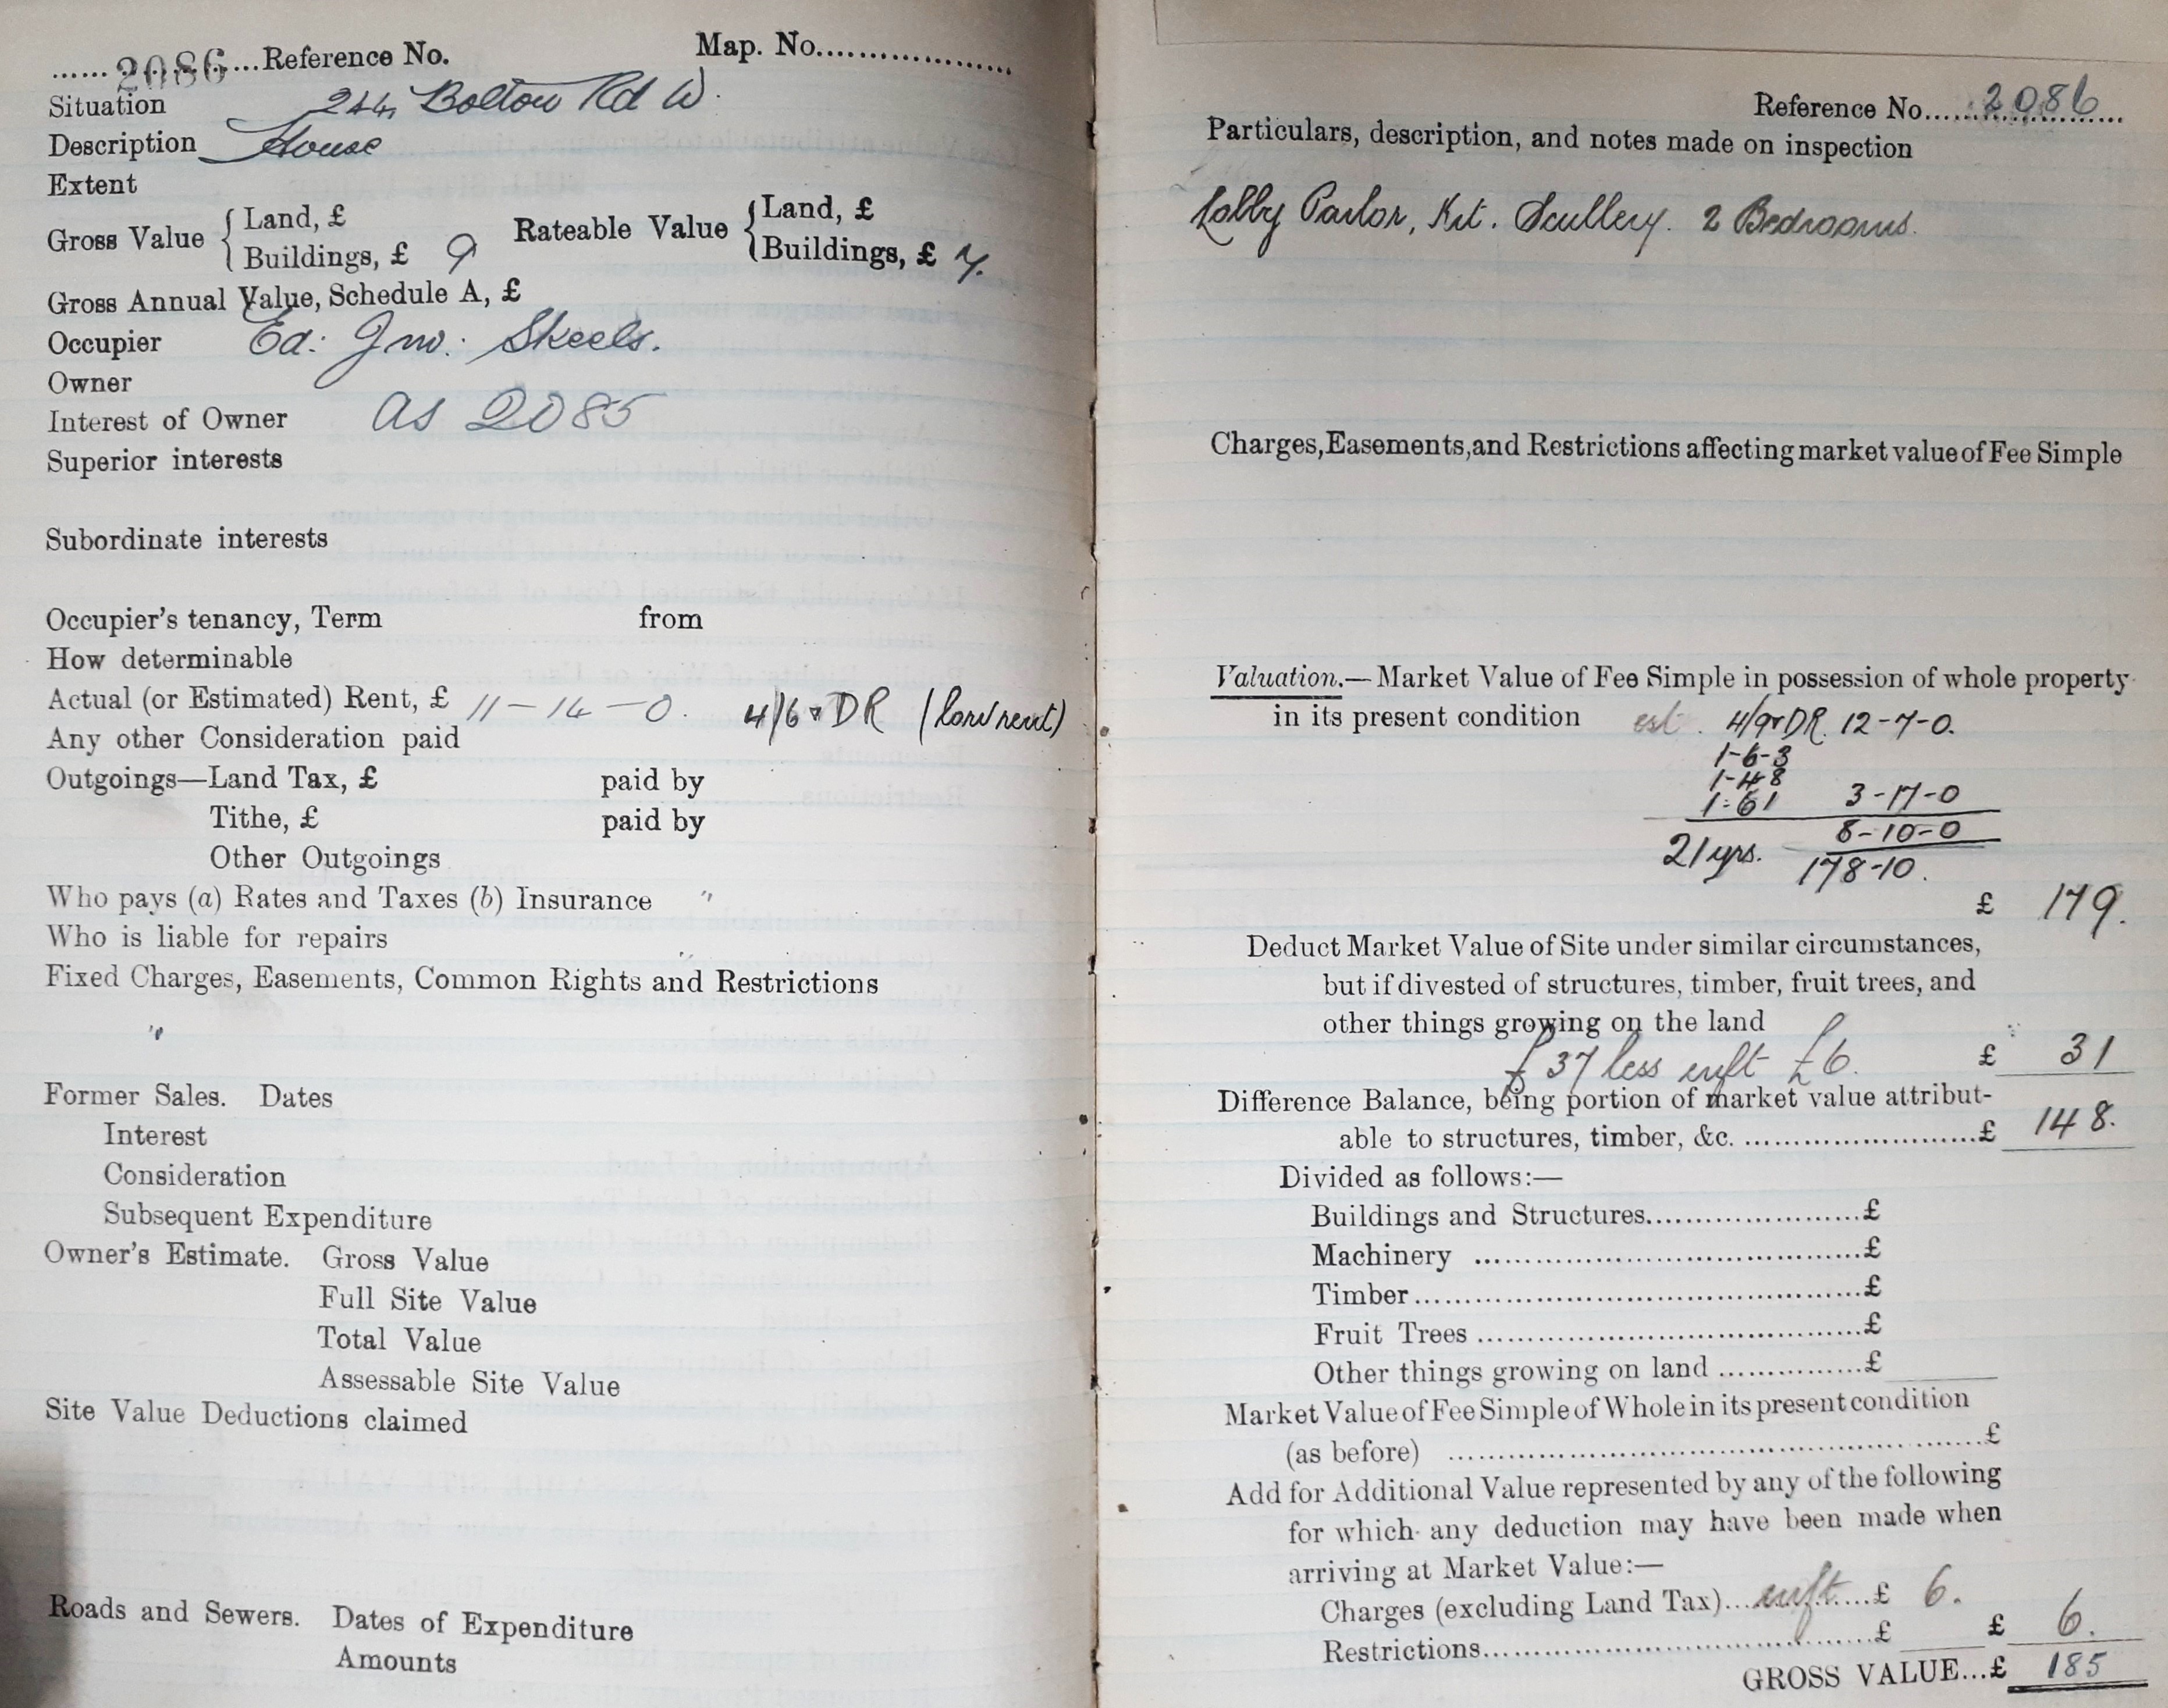 ......2086...Reference No. Map. No...................
Situation 244, Bolton Rd W.
Description House
Extent
Gross Value { Land, £ Rateable Value { Land, £
Buildings, £ 9 Buildings, £ 7.
Gross Annual Value, Schedule A, £
Occupier Ed: Jno: Skeels.
Owner
Interest of Owner as 2085
Superior interests
Subordinate interests
Occupier's tenancy, Term from
How determinable
Actual (or Estimated) Rent, £ 11-14-0. 4/6 DR (low rent)
Any other Consideration paid
Outgoings—Land Tax, £ paid by
Tithe, £ paid by
Other Outgoings
Who pays (a) Rates and Taxes (b) Insurance "
Who is liable for repairs
Fixed Charges, Easements, Common Rights and Restrictions
Former Sales. Dates
Interest
Consideration
Subsequent Expenditure
Owner's Estimate. Gross Value
Full Site Value
Total Value
Assessable Site Value
Site Value Deductions claimed
Roads and Sewers. Dates of Expenditure
Amounts
Reference No....2086...
Particulars, description, and notes made on inspection
Lobby Parlor, Kit. Scullery. 2 Bedrooms.
Charges, Easements, and Restrictions affecting market value of Fee Simple
Valuation.—Market Value of Fee Simple in possession of whole property
in its present condition est. 4/9 DR. 12-7-0.
1-6-3
1-4-8
1-6 1 3-17-0
8-10-0
21 yrs. 178-10.
£ 179.
Deduct Market Value of Site under similar circumstances,
but if divested of structures, timber, fruit trees, and
other things growing on the land
£37 less £6. £ 31
Difference Balance, being portion of market value attribut-
able to structures, timber, &c. ..........................£ 148.
Divided as follows:—
Buildings and Structures.......................£
Machinery .............................................£
Timber....................................................£
Fruit Trees .............................................£
Other things growing on land ...............£
Market Value of Fee Simple of Whole in its present condition
(as before) ........................................................£
Add for Additional Value represented by any of the following
for which any deduction may have been made when
arriving at Market Value:—
Charges (excluding Land Tax)...............£ 6.
Restrictions.............................................£ £ 6.
GROSS VALUE...£ 185